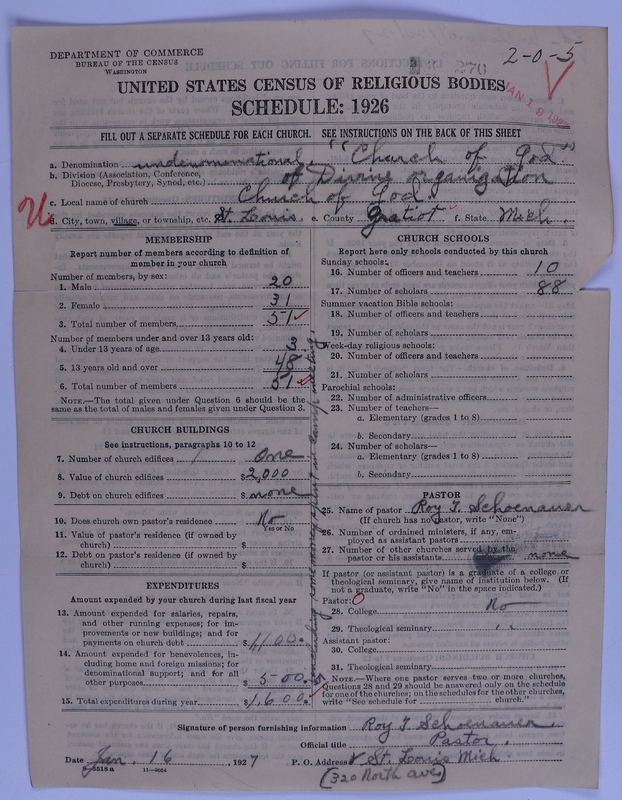 DEPARTMENT OF COMMERCE
BUREAU OF THE CENSUS
WASHINGTON
270
2-0-5
UNITED STATES CENSUS OF RELIGIOUS BODIES
JAN 19 192
SCHEDULE: 1926
FILL OUT A SEPARATE SCHEDULE FOR EACH CHURCH. SEE INSTRUCTIONS ON THE BACK OF THIS SHEET
a. Denomination undenominational. "Church of God"
b. Division (Association, Conference, Diocese, Presbytery, Synod, etc.) of Divine organization
c. Local name of church Church of God.
d. City, town, village, or township, etc. St. Louis. e. County Gratiot f. State Mich.
MEMBERSHIP
Report number of members according to definition of
member in your church
Number of members, by sex:
1. Male 20
2. Female 31
3. Total number of members 51
Number of members under and over 13 years old:
4. Under 13 years of age 3
5. 13 years old and over 48
6. Total number of members 51
NOTE.—The total given under Question 6 should be
same as the total of males and females given under Question 3.
CHURCH BUILDINGS
See instructions, paragraphs 10 to 12
7. Number of church edifices One
8. Value of church edifices $2,000
9. Debt on church edifices $none
10. Does church own pastor's residence No
Yes or No
11. Value of pastor's residence (if owned by
church) $
12. Debt on pastor's residence (if owned by
church) $
EXPENDITURES
Amount expended by your church during last fiscal year
13. Amount expended for salaries, repairs,
and other running expenses; for im-
provements or new buildings; and for
payments on church debt $
14. Amount expended for benevolences, in-
cluding home and foreign missions; for
denominational support; and for all
other purposes $ 500.
15. Total expenditures during year $1,600.
including some money spent in camp meeting.
CHURCH SCHOOLS
Report here only schools conducted by this church
Sunday schools:
16. Number of officers and teachers 10
17. Number of scholars 88
Summer vacation Bible schools:
18. Number of officers and teachers
19. Number of scholars
Week-day religious schools:
20. Number of officers and teachers
21. Number of scholars
Parochial schools:
22. Number of administrative officers
23. Number of teachers—
a. Elementary (grades 1 to 8)
b. Secondary
24. Number of scholars—
a. Elementary (grades 1 to 8)
b. Secondary
PASTOR
25. Name of pastor Roy T. Schoenauer
(If church has no pastor, write "None")
26. Number of ordained ministers, if any, em-
ployed as assistant pastors
27. Number of other churches served by the
pastor or his assistants none
If pastor (or assistant pastor) is a graduate of a college or
theological seminary, give name of institution below. (If
not a graduate, write "No" in the space indicated.)
Pastor:
28. College No
29. Theological seminary "
Assistant pastor:
30. College
31. Theological seminary
NOTE.—Where one pastor serves two or more churches,
Questions 28 and 29 should be answered only on the schedule
for one of the churches; on the schedules for the other churches,
write "See schedule for church."
Signature of person furnishing information Roy T Schoenauer.
Official title Pastor.
Date Jan. 16, 1927 P. O. Address St. Louis Mich.
8-5518a 11-9064 (320 North ave)